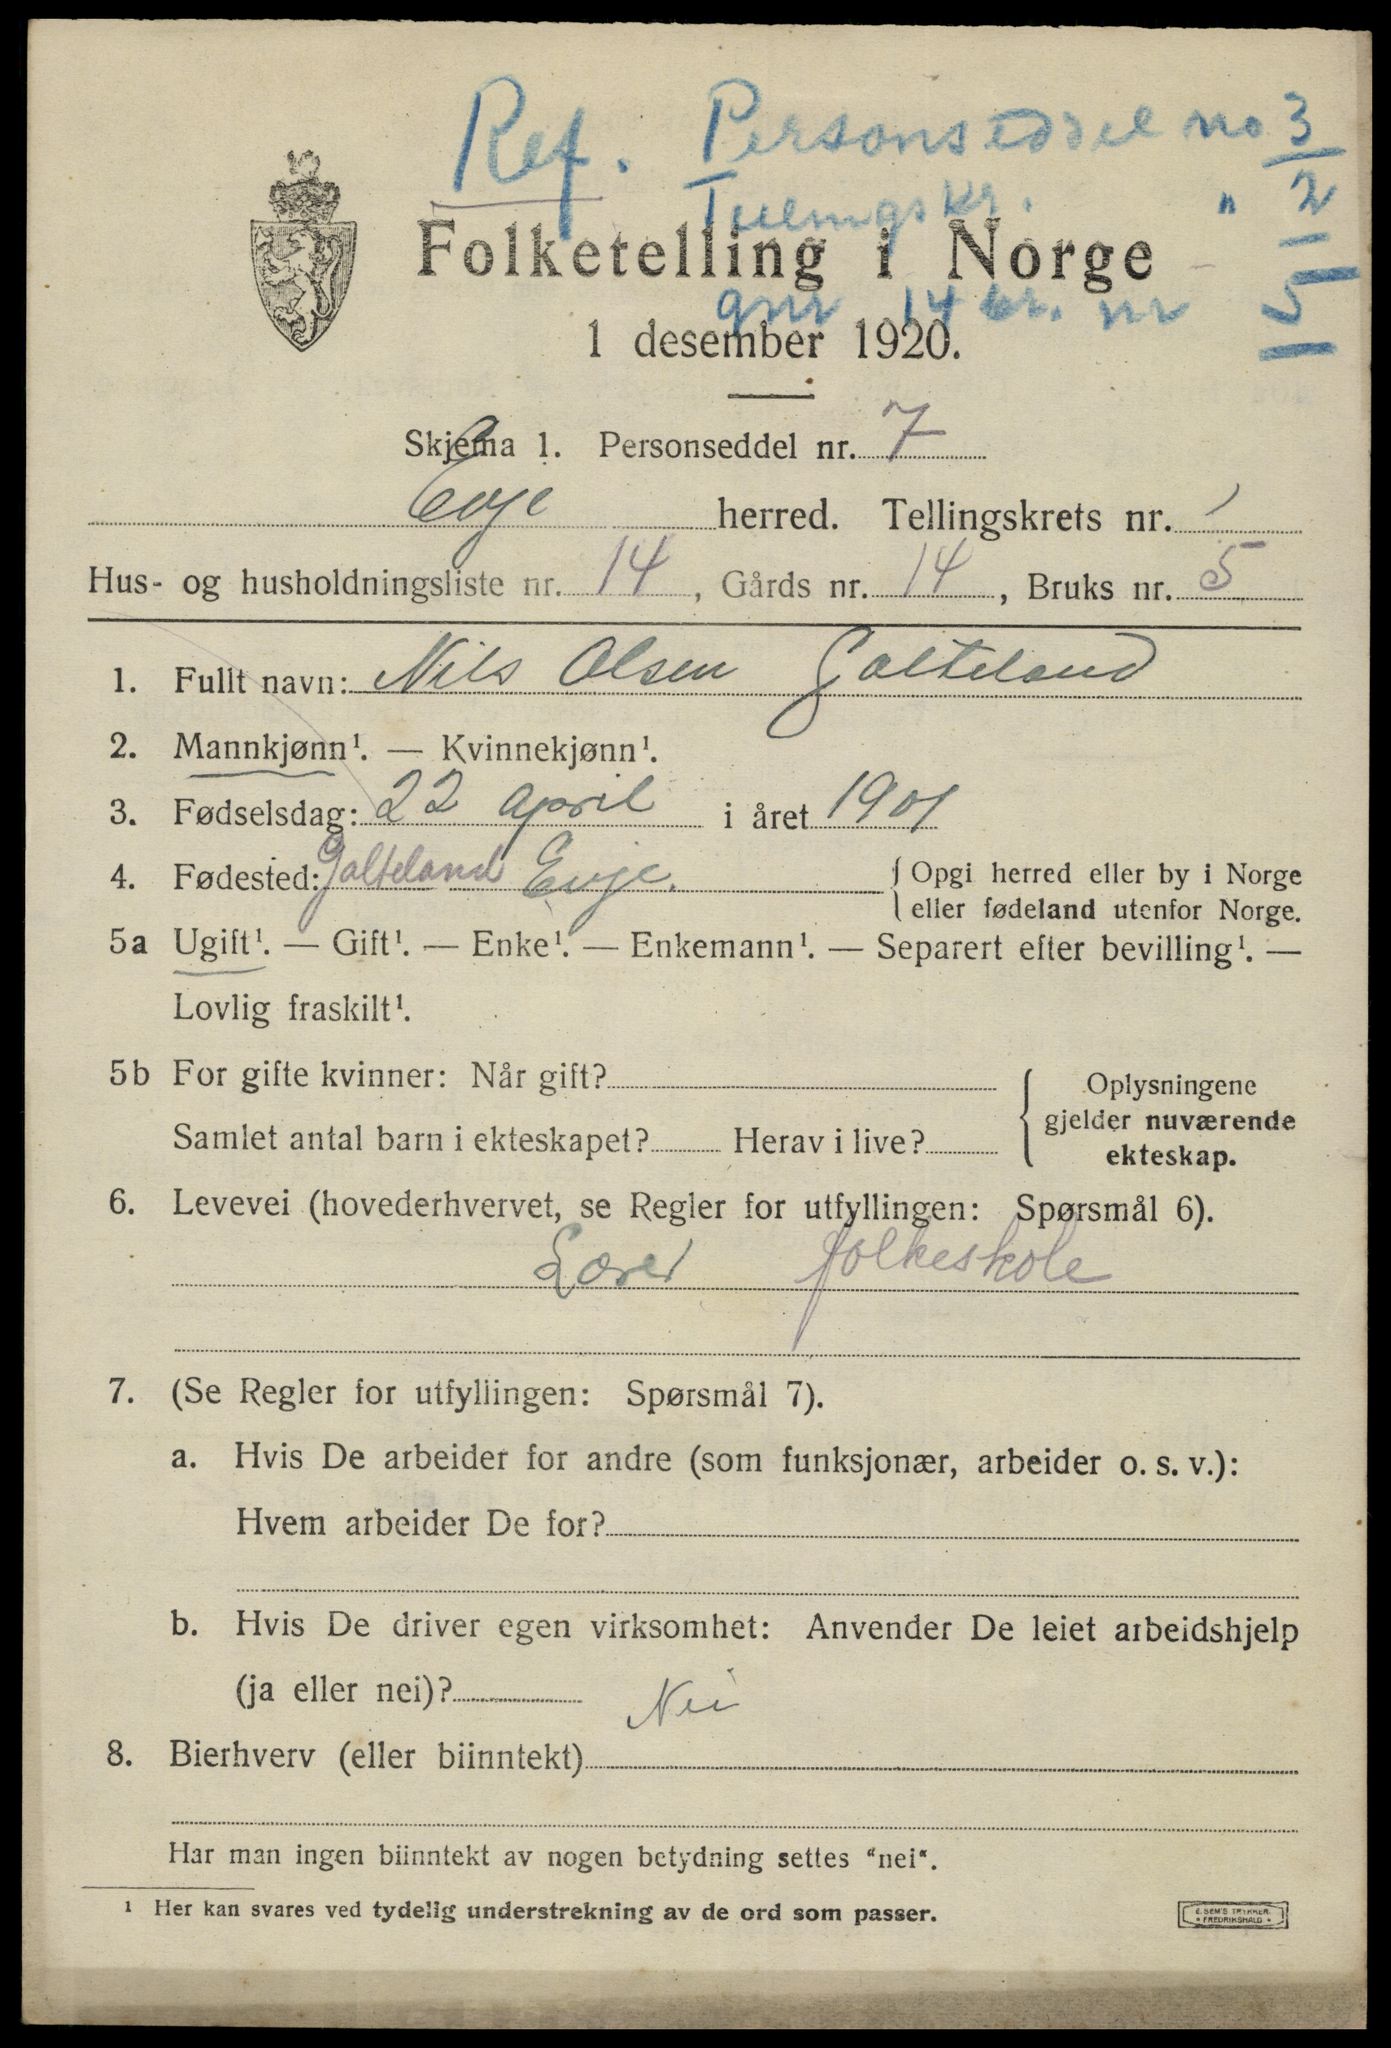 Ref. Personseddel no 3
Tellingskr. " 2
Folketelling i Norge
gnr 14 br. nr 5
1 desember 1920.
Skjema 1. Personseddel nr. 7
Evje herred. Tellingskrets nr. 1
Hus- og husholdningsliste nr. 14, Gårds nr. 14, Bruks nr. 5
1. Fullt navn: Nils Olsen Galteland
2. Mannkjønn¹. — Kvinnekjønn¹.
3. Fødselsdag: 22 april i året 1901
4. Fødested: Galteland Evje. { Opgi herred eller by i Norge
eller fødeland utenfor Norge.
5a Ugift¹. — Gift¹. — Enke¹. — Enkemann¹. — Separert efter bevilling¹. —
Lovlig fraskilt¹.
5b For gifte kvinner: Når gift?
Samlet antal barn i ekteskapet? Herav i live?
Oplysningene
gjelder nuværende
ekteskap.
6. Levevei (hovederhvervet, se Regler for utfyllingen: Spørsmål 6).
Lærer folkeskole
7. (Se Regler for utfyllingen: Spørsmål 7).
a. Hvis De arbeider for andre (som funksjonær, arbeider o. s. v.):
Hvem arbeider De for?
b. Hvis De driver egen virksomhet: Anvender De leiet arbeidshjelp
(ja eller nei)?
Nei
8. Bierhverv (eller biinntekt)
Har man ingen biinntekt av nogen betydning settes "nei".
¹ Her kan svares ved tydelig understrekning av de ord som passer.
E. SEM'S TRYKKER.
FREDRIKSHALD